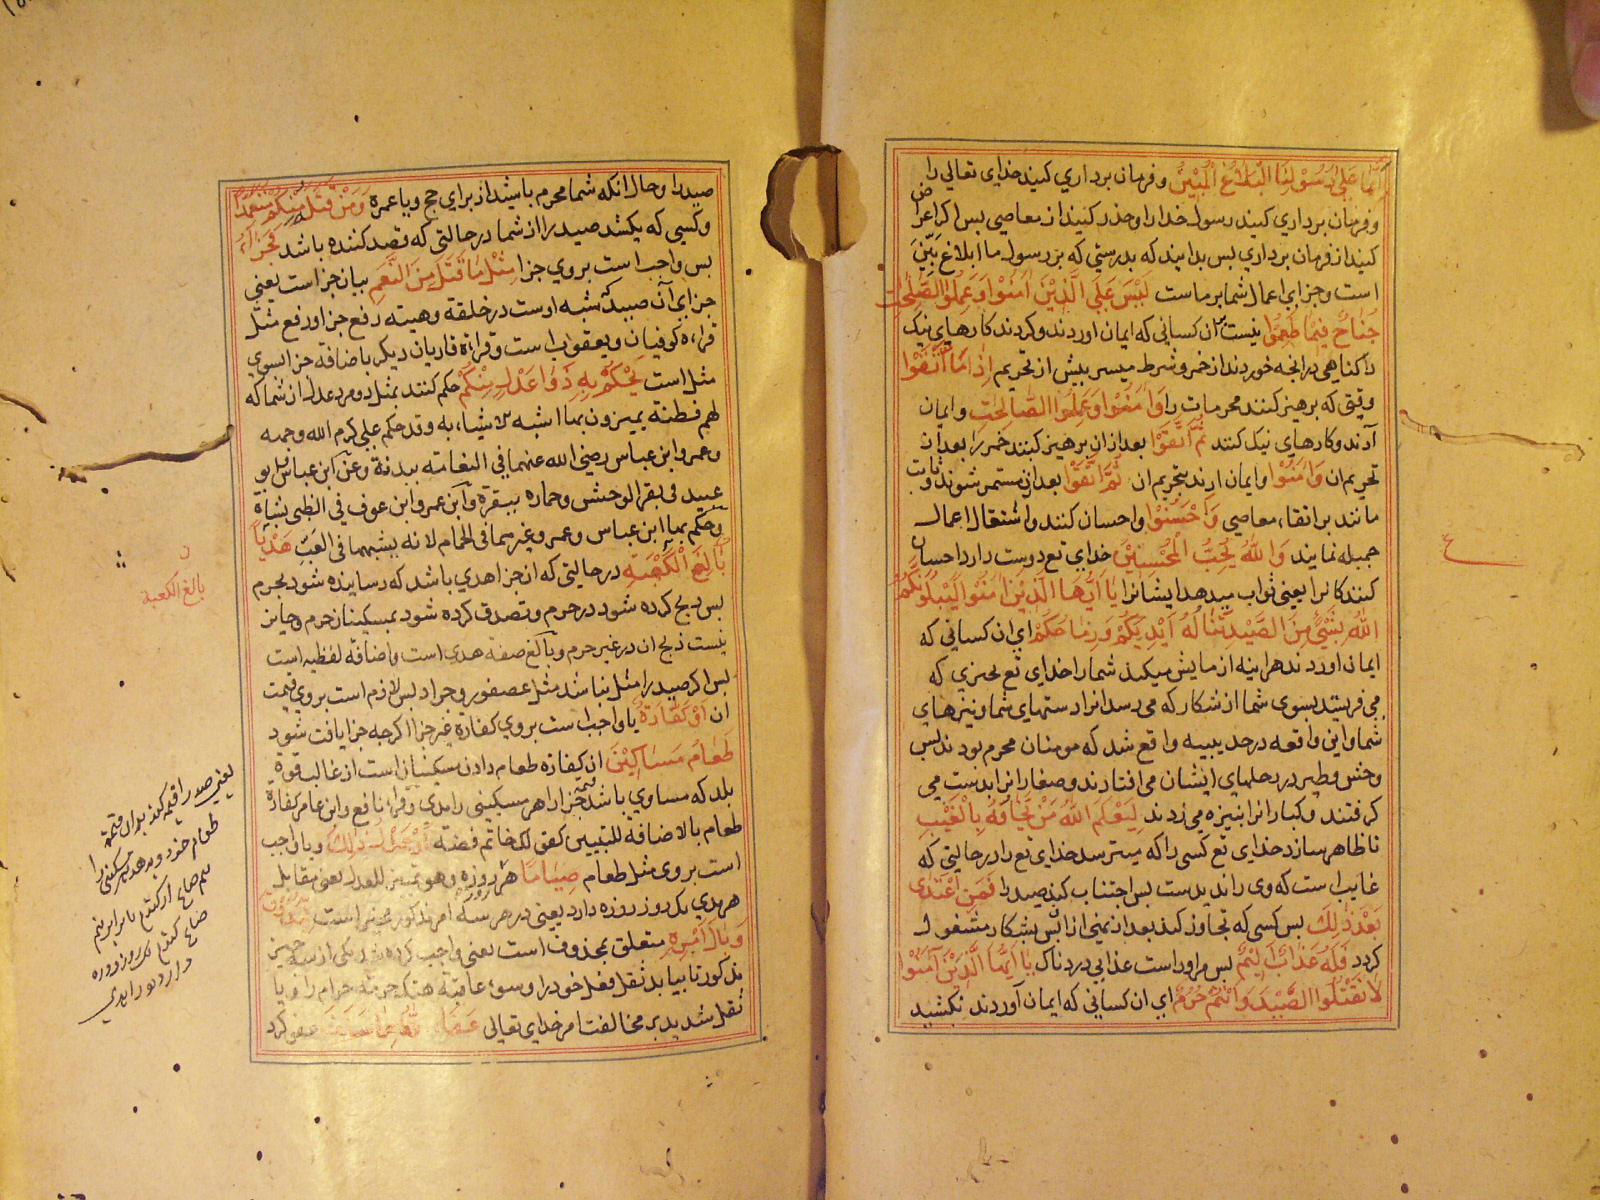 أنما على رسولنا البلاغ المبين و فرمان برداري كنيد خداي تعالي را
و فرمان برداري كنيد رسول خدا را و حذر كنيد از معاصي بس اكر اعراض
كنيد از فرمان برداري بس بدانيد كه بدرستي كه بر رسول ما ابلاغ بين
است و جزاي اعمال شما بر ماست ليس على الذين امنوا وعملوا الصلحت
جناح فيما طعموا نيست بر آن كساني كه ايمان اوردند و كردند كارهاي نيك
را كناهي در انجه خوردند از خمر و شرط ميسر بيش از تحريم اذا ما اتقوا
وقتي كه برهيز كنند محرمات را وامنوا وعملوا الصالحت و ايمان
آرند و كارهاي نيك كنند ثم اتقوا بعد از ان برهيز كنند خمر را بعد از
تحريم ان وامنوا و ايمان ارند بتحريم ان ثم اتقوا بعد از ان مستمر شوند و ثابت
مانند بر اتقاء معاصي واحسنوا و احسان كنند و اشتغال اعمال
جميله نمايند والله يحب المحسنين خداي تع دوست دارد احسان
كنندكانرا يعني ثواب ميدهد ايشانرا يا ايها الذين امنوا ليبلونكم
الله بشيء من الصيد تناله ايديكم ورماحكم اي ان كساني كه
ايمان اوردند هراينه ازمايش ميكند شما را خداي تع بحيزي كه
مي فرستد بسوي شما از شكار كه مي رسد انرا دستهاي شما و نيزهاي
شما و اين واقعه در حديبيه واقع شد كه مومنان محرم بودند بس
وحش و طير در رحلهاي ايشان مي افتادند و صغار انرا بدست مي
كرفتند و كبار انرا بنيزه مي زدند ليعلم الله من يخافه بالغيب
تا ظاهر سازد خداي تع كسي را كه ميترسد خداي تع را در حالتي كه
غايب است كه وي را نديدست بس اجتناب كند صيد را فمن اعتدى
بعد ذلك بس كسي كه تجاوز كند بعد از نهي از ان بس بشكار مشغول
كردد فله عذاب اليم بس مر اوراست عذابي دردناك يا ايها الذين آمنوا
لا تقتلوا الصيد وانتم حرم اي ان كساني كه ايمان آوردند نكشيد
ع
صيد را و حال انكه شما محرم باشيد از براي حج و يا عمره ومن قتله منكم متعمدا
و كسي كه بكشد صيد را از شما در حالتي كه قصد كننده باشد فجزاء
بس واجب است بر وي جزا مثل ما قتل من النعم بيان جزا است يعني
جزاي آن صيد كه شبه اوست در خلقة و هيئه رفع جزا و رفع مثل
قراءة كوفيان و يعقوب است و قراءة قاريان ديكر باضافه جزا بسوي
مثل است يحكم به ذوا عدل منكم حكم كنند بمثل دو مرد عدل از شما كه
لهم فطنة يميزون بها اشبه الاشياء به وقد حكم علي كرم الله وجهه
وعمر وابن عباس رضي الله عنهما في النعامة ببدنة وعن ابن عباس وابو
عبيد في بقر الوحش وحماره ببقرة وابن عمر وابن عوف في الظبي بشاة
وحكم بها ابن عباس وعمر وغيرهما في الحمام لانه يشبهها في العب هديا
بالغ الكعبة در حالتي كه ان جزا هدي باشد كه رسانيده شود بحرم
بس ذبح كرده شود در حرم و تصدق كرده شود بمسكينان حرم و جايز
نيست ذبح ان در غير حرم و بالغ صفه هدي است و اضافه لفظيه است
بس اكر صيد را مثل نباشد مثل عصفور و جراد بس لازم است بر وي قيمت
ان او كفارة يا واجب است بر وي كفارة غير جزا اكرجه جزا يافت شود
طعام مساكين ان كفاره طعام دادن مسكينان است از غالب قوة
بلد كه مساوي باشد قيمة جزا را هر مسكيني را مدي و قراء نافع و ابن عامر كفارة
طعام بالاضافه للتبيين كقولك خاتم فضة او عدل ذلك و يا واجب
است بر وي مثل طعام صياما هر روزه وهو تمييز للعدل يعني مقابل
هر مدي يك روز روزه دارد يعني در هر سه امر مذكور مخير است ليذوق
وبال امره متعلق بمحذوف است يعني واجب كرده شد يكي از سه جيز
مذكور تا بيابد ثقل فعل خود را و سوء عاقبة هتك حرمة حرام را و يا
ثقل شديد بر مخالفت امر خداي تعالي عفا الله عما سلف عفو كرد
ن
بالغ الكعبة
يعني صيد را قيمه كند بدان قيمة
طعام خرد و بدهد هر مسكيني را
نيم صاع از كندم يا برابر نيم
صاع كندم يك روز روزه